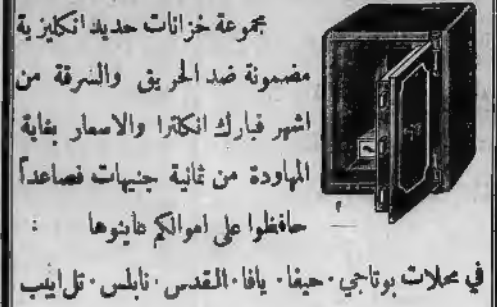 مجموعة خزانات حديد انكليزية
مضمونة ضد الحريق والسرقة من
اشهر فبارك انكلترا والاسعار بغاية
المهاودة من ثمانية جنيهات فصاعداً
حافظوا على اموالكم عاينوها :
في محلات بوتاجي · حيفا · يافا · القدس · نابلس · تل ابيب